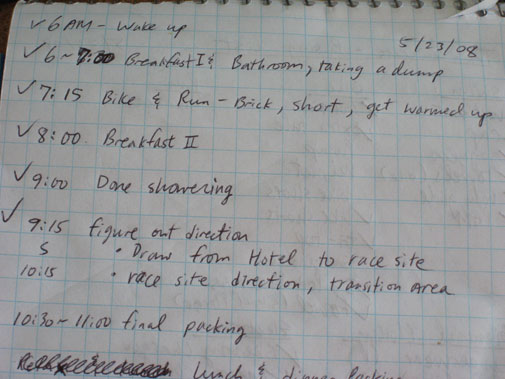 ✓ 6 AM - Wake up
5/23/08
✓ 6 ~ 7:00 Breakfast I & Bathroom, taking a dump
✓ 7:15 Bike & Run - Brick, short, get warmed up
✓ 8:00 Breakfast II
✓ 9:00 Done showering
✓ 9:15 figure out direction
S • Draw from Hotel to race site
10:15 • race site direction, transition Area
10:30 ~ 11:00 final packing
lunch & dinner Packing